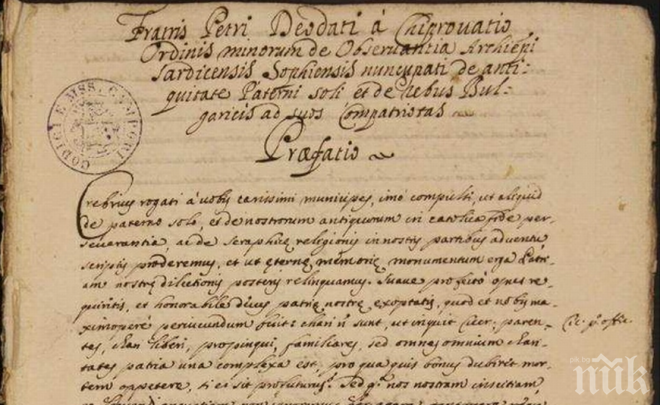 Fratris Petri Deodati à Chiprovatio
Ordinis minorum de Observantia Archiepi
Sardicensis Sophiensis nuncupati de anti-
quitate Paterni soli et de rebus Bul-
garicis ad suos Compatriotas
Præfatio
CODICI E MSS. CAMPORI
Crebrius rogati à vobis carissimi municipes, imò compulsi, ut aliquid
de paterno solo, et de nostrorum antiquorum in catolica fide per
severantia, ac de Seraphicę religionis in nostris partibus adventu
scriptis proderemus, et ut ęternę memorię monumentum erga Patri
am nostrę dilectionis posteris relinquamus. Suave profectò opus re
quiritis, et honorabile decus patrię nostrę exoptatis, quod et nobis ma
ximoperè periucundum fuit: chari n̄ sunt, ut inquit Cicer. paren-
Cic. pº offic.
tes, chari liberi, propinqui, familiares, sed omnes omnium chari
tates patria una complexa est, pro qua quis bonus dubitet mor
tem oppetere, si ei sit profuturus? Sed